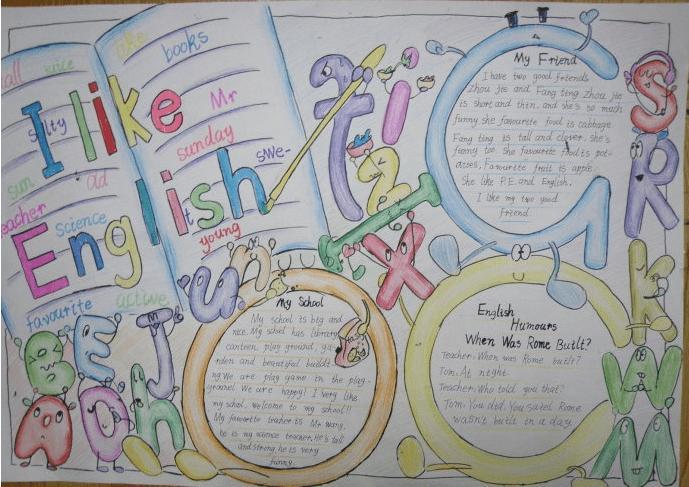 all
nice
like
books
I like
salty
Mr
sunday
swe-
sun
ad
teacher
science
English
young
favourite
active
My Friend
I have two good friends
Zhou jie and Fang ting Zhou jie
is short and thin. and she's so much
funny she favourite food is cabbage.
Fang ting is tall and clever. she's
funny too. She favourite food is pot-
atoes, Favourite fruit is apple.
She like P.E. and English.
I like my two good
friend.
My School
My school is big and
nice. My school has library
canteen play ground, ga-
rden and beautiful buildi
ng We are play game in the play-
ground. We are happy! I very like
my school. welcome to my school!!
My favourite teacher is Mr Wang,
he is my science teacher. He's tall
and strong, he is very
funny.
English
Humours
When Was Rome Built?
Teacher: When was Rome built?
Tom: At night.
Teacher: Who told you that?
Tom: You did. You said Rome
wasn't built in a day.
t
i
z
I
X
u
n
S
R
K
W
M
B
E
J
A
O
h